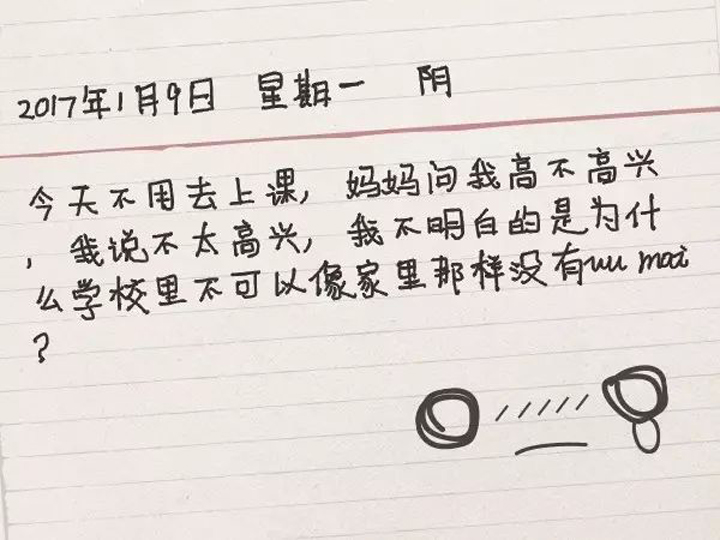 2017年1月9日 星期一 阴
今天不用去上课, 妈妈问我高不高兴
, 我说不太高兴, 我不明白的是为什
么学校里不可以像家里那样没有wu mai
?